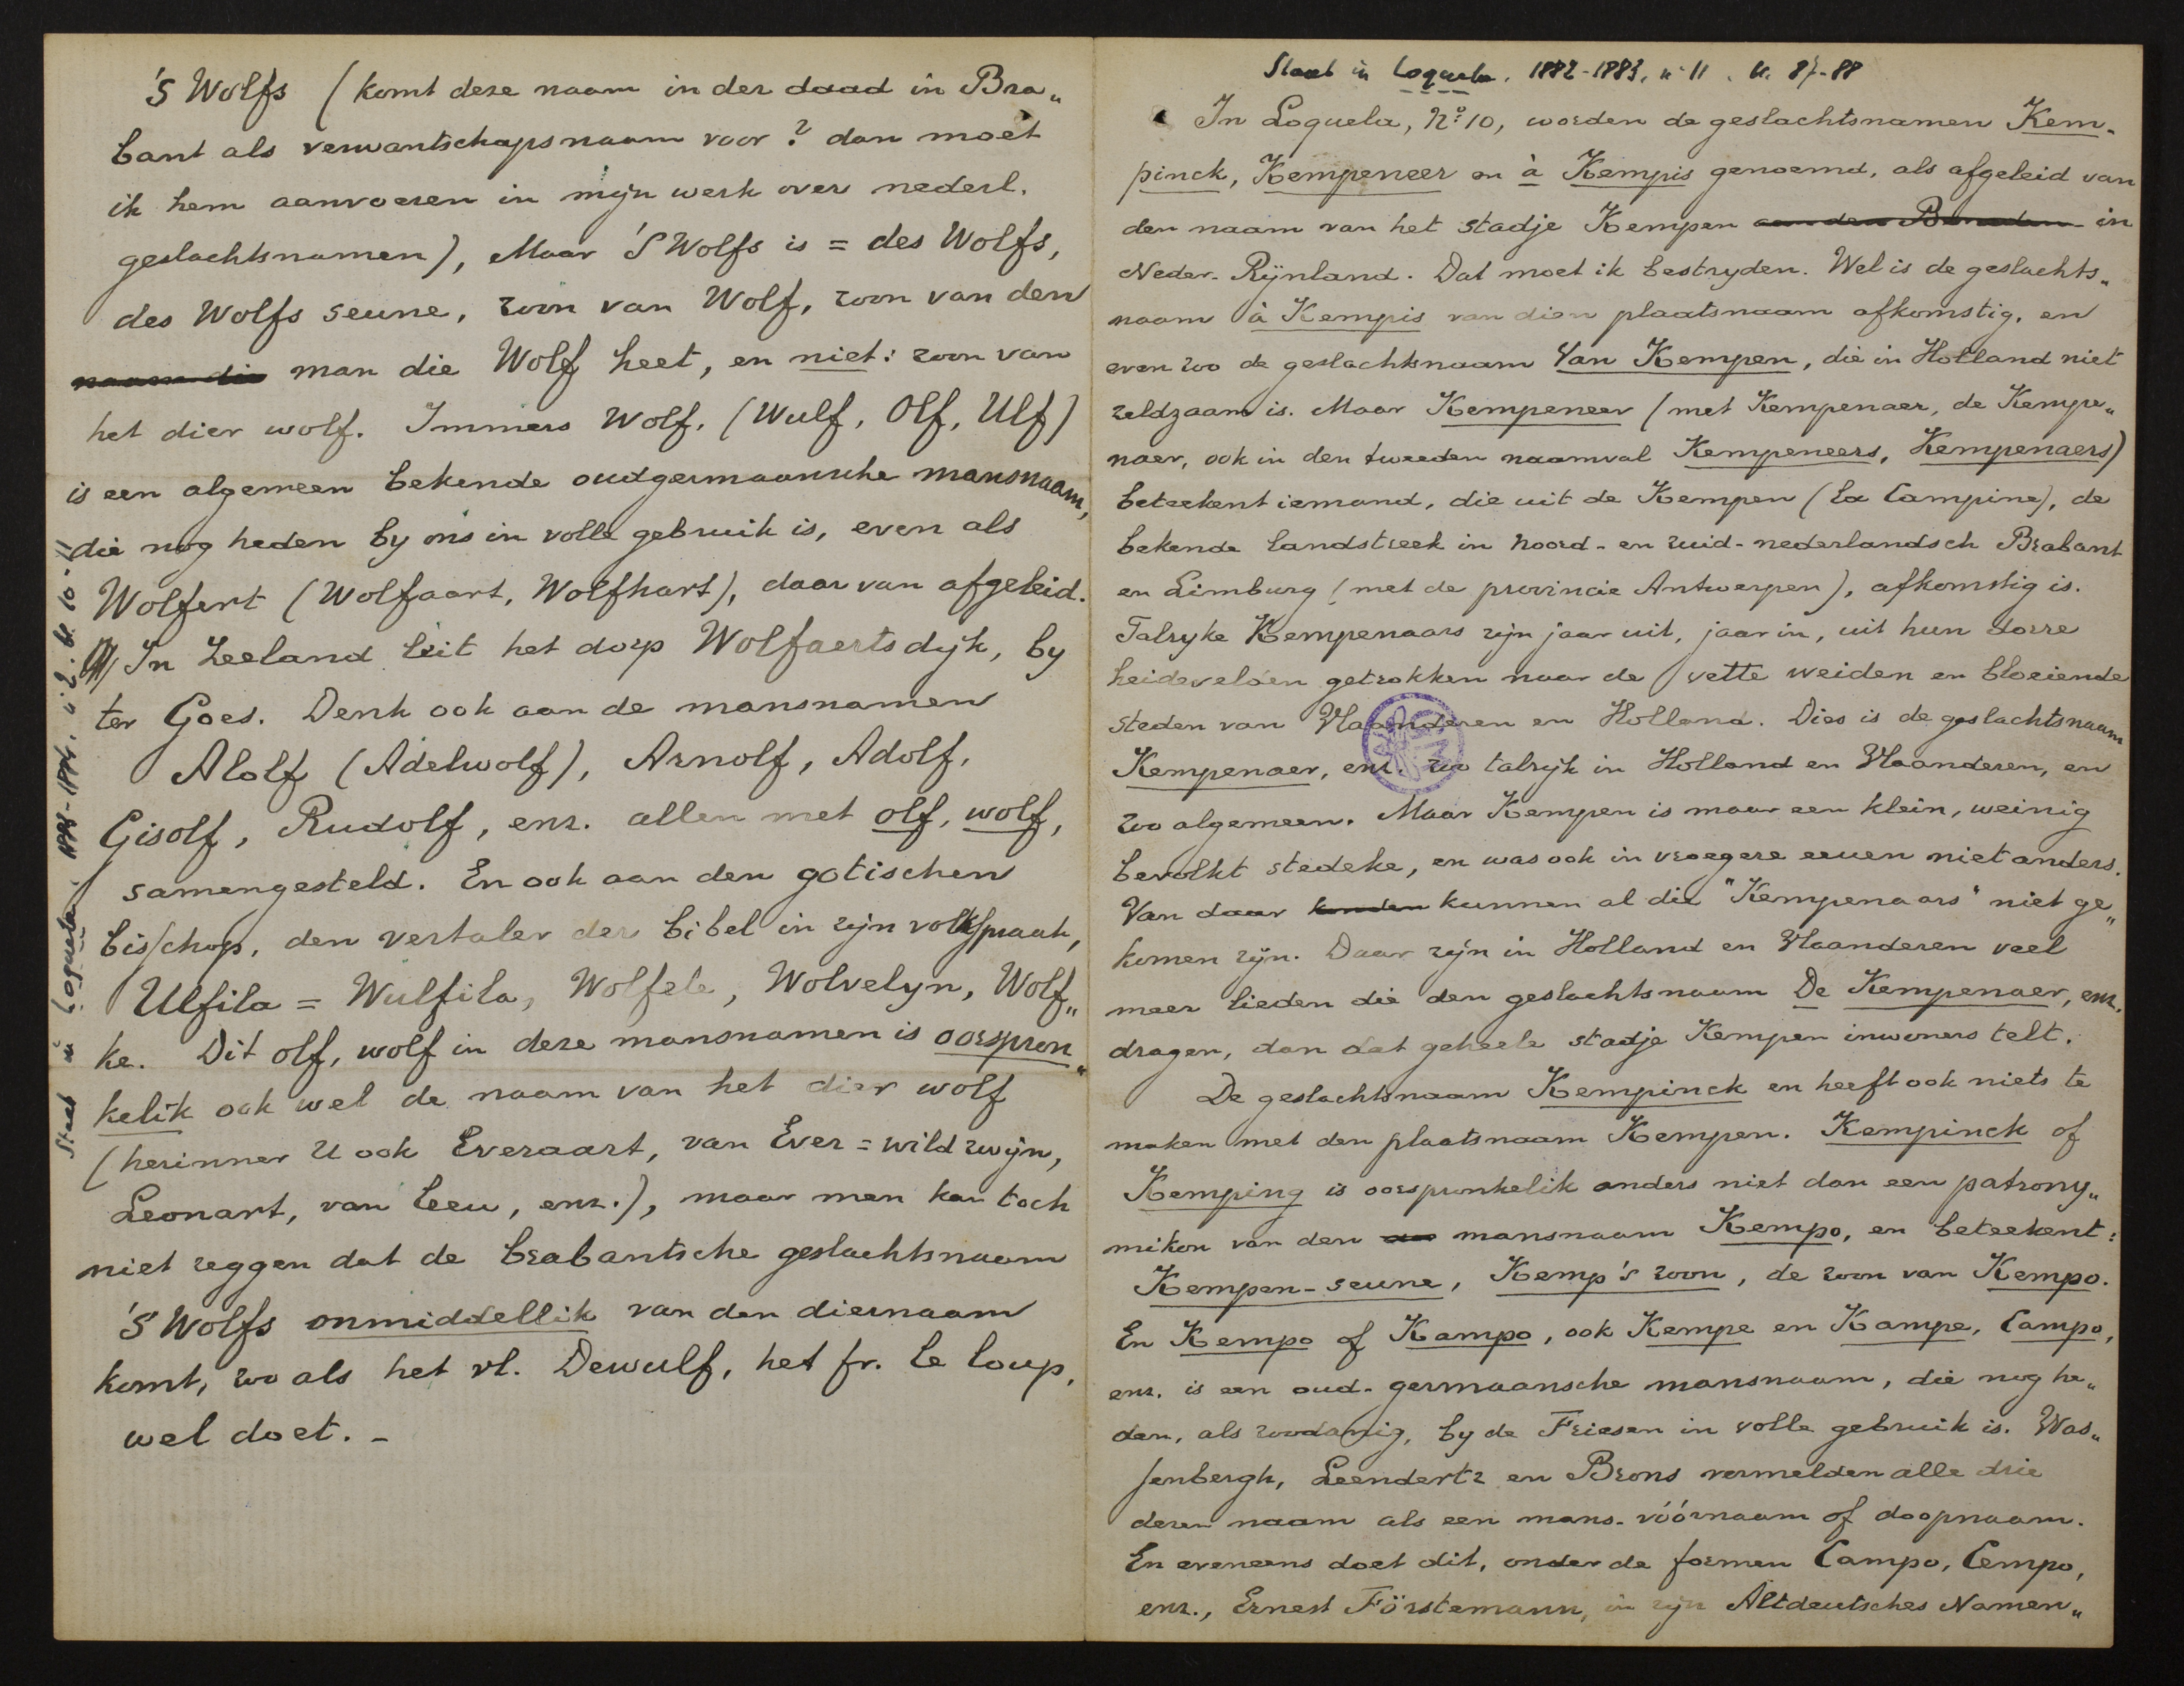 'S Wolfs (komt deze naam in der daad in Bra„
bant als verwantschapsnaam voor? dan moet
ik hem aanvoeren in mijn werk over nederl.
geslachtsnamen), Maar 'S Wolfs is = des Wolfs,
des Wolfs seune, zoon van Wolf, zoon van den
naam die man die Wolf heet, en niet: zoon van
het dier wolf. Immers Wolf, (Wulf, Olf, Ulf)
is een algemeen bekende oudgermaansche mansnaam,
die nog heden by ons in volle gebruik is, even als
Wolfert (Wolfaart, Wolfhart), daar van afgeleid.
In Zeeland leit het dorp Wolfaertsdijk, by
ter Goes. Denk ook aan de mansnamen
Alolf (Adelwolf), Arnolf, Adolf,
Gisolf, Rudolf, enz. allen met olf, wolf,
samengesteld. En ook aan den gotischen
bisschop, den vertaler der bibel in zijn volksspraak,
Ulfila = Wulfila, Wolfele, Wolvelyn, Wolf„
ke. Dit olf, wolf in deze mansnamen is oorspron„
kelik ook wel de naam van het dier wolf
(herinner U ook Everaart, van Ever = wild zwijn,
Leonart, van leeu, enz.), maar men kan toch
niet zeggen dat de brabantsche geslachtsnaam
'S Wolfs onmiddellik van den diernaam
komt, zoo als het vl. Dewulf, het fr. Le loup,
wel doet. –
Staat in Loquela. n° 2. bl. 10-11
Staat in Loquela. 1882-1883, n° 11. bl. 87-88
In Loquela, N° 10, worden de geslachtsnamen Kem-
pinck, Kempeneer en à Kempis genoemd, als afgeleid van
den naam van het stadje Kempen in
Neder-Rijnland. Dat moet ik bestryden. Wel is de geslachts„
naam à Kempis van dien plaatsnaam afkomstig, en
even zoo de geslachtsnaam Van Kempen, die in Holland niet
zeldzaam is. Maar Kempeneer (met Kempenaer, de Kempe„
naer, ook in den tweeden naamval Kempeneers, Kempenaers)
beteekent iemand, die uit de Kempen (la Campine), de
bekende landstreek in Noord- en zuid-nederlandsch Brabant
en Limburg (met de provincie Antwerpen), afkomstig is.
Talryke Kempenaars zijn jaar uit, jaar in, uit hun dorre
heidevelden getrokken naar de vette weiden en bloeiende
steden van Vlaanderen en Holland. Dies is de geslachtsnaam
Kempenaer, enz. zoo talrijk in Holland en Vlaanderen, en
zoo algemeen. Maar Kempen is maar een klein, weinig
bevolkt stedeke, en was ook in vroegere eeuen niet anders.
Van daar konden kunnen al die "Kempenaars" niet ge„
komen zijn. Daar zijn in Holland en Vlaanderen veel
meer lieden die den geslachtsnaam De Kempenaer, enz.
dragen, dan dat geheele stadje Kempen inwoners telt.
De geslachtsnaam Kempinck en heeft ook niets te
maken met den plaatsnaam Kempen. Kempinck of
Kemping is oorspronkelik anders niet dan een patrony„
mikon van den mansnaam Kempo, en beteekent:
Kempen-seune, Kemp's zoon, de zoon van Kempo.
En Kempo of Kampo, ook Kempe en Kampe, Campo,
enz. is een oud-germaansche mansnaam, die nog he„
den, als zoodanig, by de Friesen in volle gebruik is. Was„
senbergh, Leendertz en Brons vermelden alle drie
dezen naam als een mans-vóórnaam of doopnaam.
En eveneens doet dit, onder de formen Campo, Cempo,
enz., Ernest Förstemann, in zijn Altdeutsches Namen„